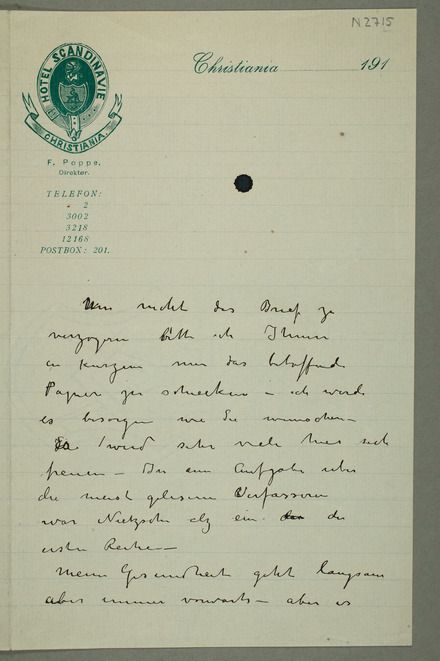 N2715
HOTEL SCANDINAVIE
CHRISTIANIA.
Christiania 191
F. Poppe.
Direktør.
TELEFON:
2
3002
3218
12168
POSTBOX: 201.
Um nicht das Brief zu
verzogern bitte ich Ihnen
in Kurzem nur das betreffende
Papier zu schicken – ich werde
es besorgen wie Sie wunschen –
Sie wird sehr viele hier sich
freuen – In ein Aufgabe uber
die meist gelesene Verfasseren
war Nietzsche als ein der
erste Reihe –
Meine Gesundheit geht langsam
aber immer vorwarts – aber es